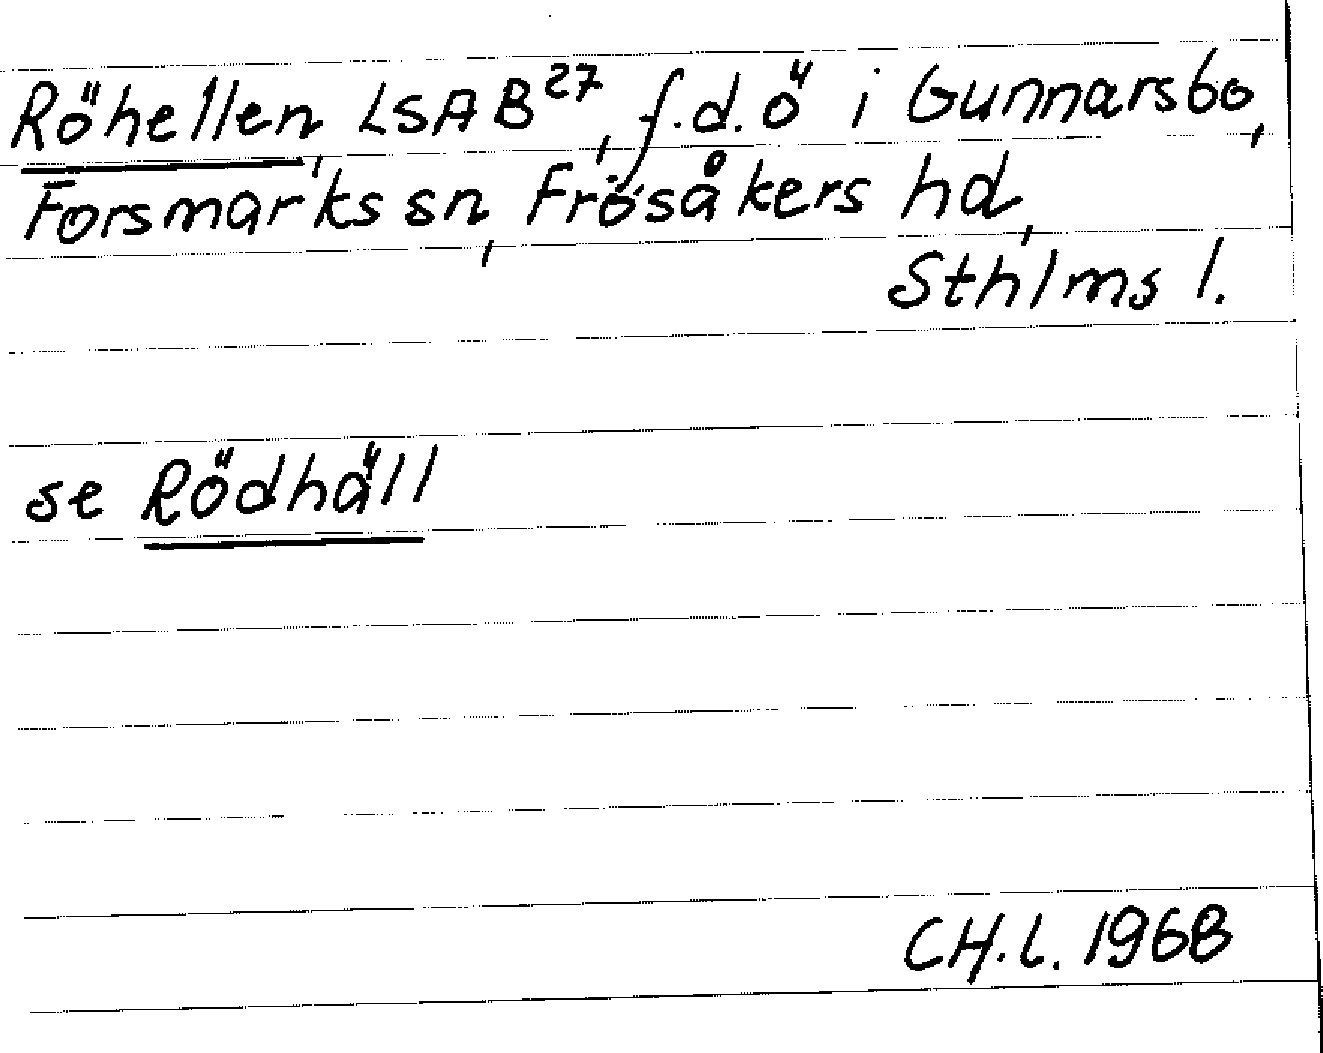 Röhellen, LSA B27, f.d. ö i Gunnarsbo,
Forsmarks sn, Frösåkers hd,
Sthlms l.
se Rödhäll
CH.L. 1968